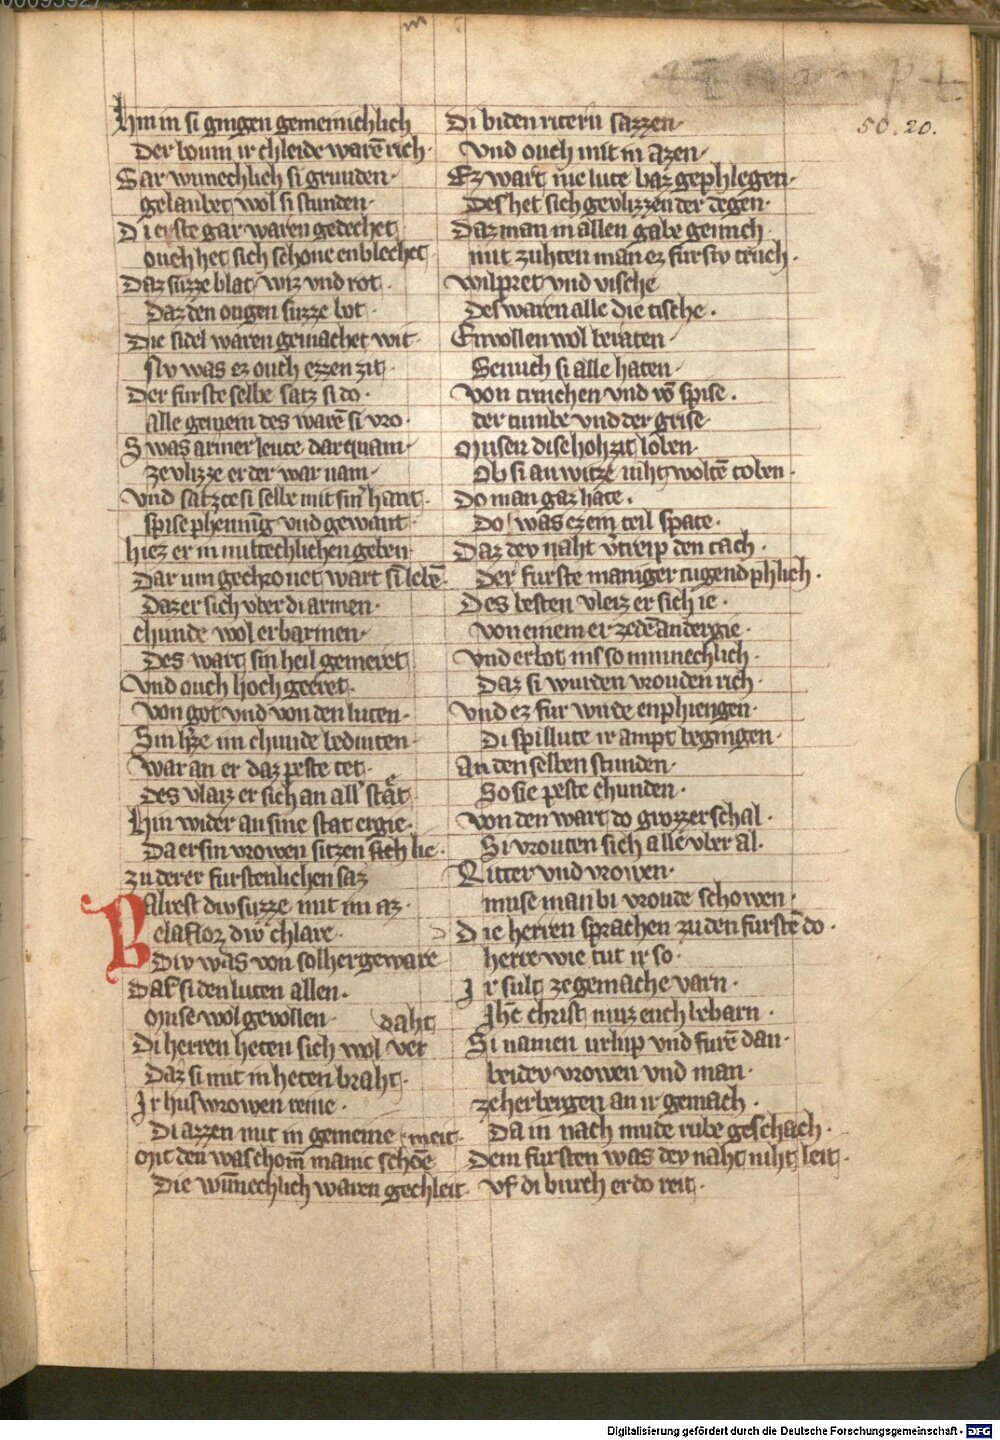 Hin in si gingen gemeinichlich
Der boum ir chleide warē rich·
Gar wunechlich si grunden·
gelaubet wol si stunden·
Di erste gar waren gedechet
ouch het sich schone enblechet
Daz suzze blat wiz vnd rot·
Daz den ougen suzze bot·
Die sidel waren gemachet wit·
Nv was ez ouch ezzen zit·
Der furste selbe satz si do·
alle gemein des warē si vro·
Swas armer leute dar quam·
ze vlizze er der war nam·
vnd satzte si selbe mit sin' hant·
spise phenning vnd gewant·
hiez er in miltechlichen geben·
Dar um gechronet wart sī lebē·
Daz er sich vber di armen·
chunde wol erbarmen·
Des wart sin heil gemeret
vnd ouch hoch geeret·
von got vnd von den luten·
Sin h'ze im chunde beduten·
war an er daz peste tet·
des vlaiz er sich an all' stat
Hin wider an sine stat er gie·
Da er sin vrowen sitzen lie·
zu derer furstenlichen saz
Balrest diw suzze mit im az·
Belaflor diw chlare·
Div was von solher geware
Daz si den luten allen·
Muse wol gevallen·
Di herren heten sich wol ver daht
Daz si mit in heten braht·
Ir huswrowen reine·
Di azzen mit in gemeine
Mit den was chom manic schōe meit·
Die wūnechlich waren gechleit·
Di biden ritern sazzen·
vnd ouch mit in azen·
Ez wart nie lute baz gephlegen·
Des het sich gevlizzen der degen·
Daz man in allen gabe genuch
mit zuhten man ez fur siv truch·
wilpret vnd vische
Des waren alle die tische·
Envollen wol beraten·
Genuch si alle haten·
von trinchen vnd vō spise·
der tumbe vnd der grise
Musen dise hohzit loben·
Ob si an witze niht woltē toben·
Do man gaz hate·
Do was ez ein teil spate·
Daz dev naht v'treip den tach·
Der furste maniger tugend phlich·
Des besten vleiz er sich ie·
von einem er ze dē andergie·
vnd erbot ins so minnechlich·
Daz si wurden vrouden rich·
vnd ez fur wirde enphiengen·
Di spillute ir ampt begingen·
An den selben stunden·
So sie peste chunden·
von den wart do grozzer schal·
Si vrouten sich alle vber al·
Ritter vnd vrowen·
muse man bi vroude schowen·
Die herren sprachen zu den furstē do·
herre wie tut ir so·
Ir sult ze gemache varn·
Jhc christ muz euch bebarn·
Si namen urlup vnd furē dan·
beidev vrowen vnd man·
ze herbergen an ir gemach·
Da in nach mude rube geschach·
Dem fursten was dev naht niht leit·
vf di burch er do reit·
50.20.
Digitalisierung gefördert durch die Deutsche Forschungsgemeinschaft - DFG